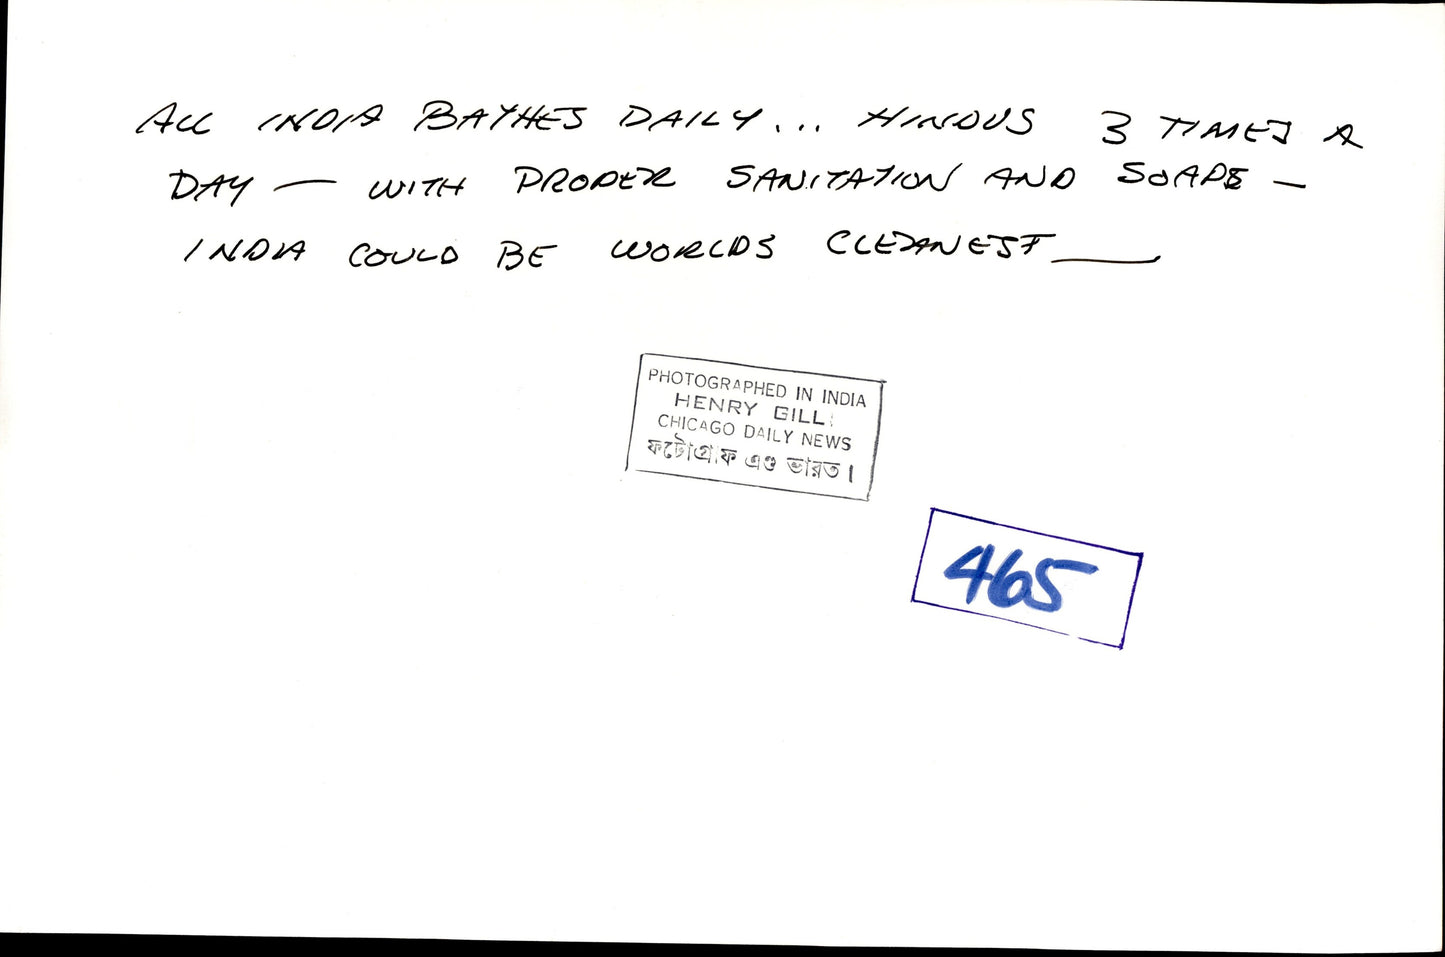 ALL INDIA BATHES DAILY... HINDUS 3 TIMES A
DAY — WITH PROPER SANITATION AND SOAPS —
INDIA COULD BE WORLDS CLEANEST —
PHOTOGRAPHED IN INDIA
HENRY GILL
CHICAGO DAILY NEWS
ফটোগ্রাফ এণ্ড ভারত।
465